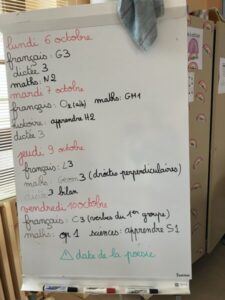 lundi 6 octobre
français : G3
dictée 3
maths: N2
mardi 7 octobre
français : O2 maths: GM1
histoire : apprendre H2
dictée 3
jeudi 9 octobre
français : L3
maths Geom 3 (droites perpendiculaires)
3 bilan
vendredi 10 octobre
français : C3 (verbes du 1er groupe)
maths: op 1 sciences: apprendre S1
date de la poésie